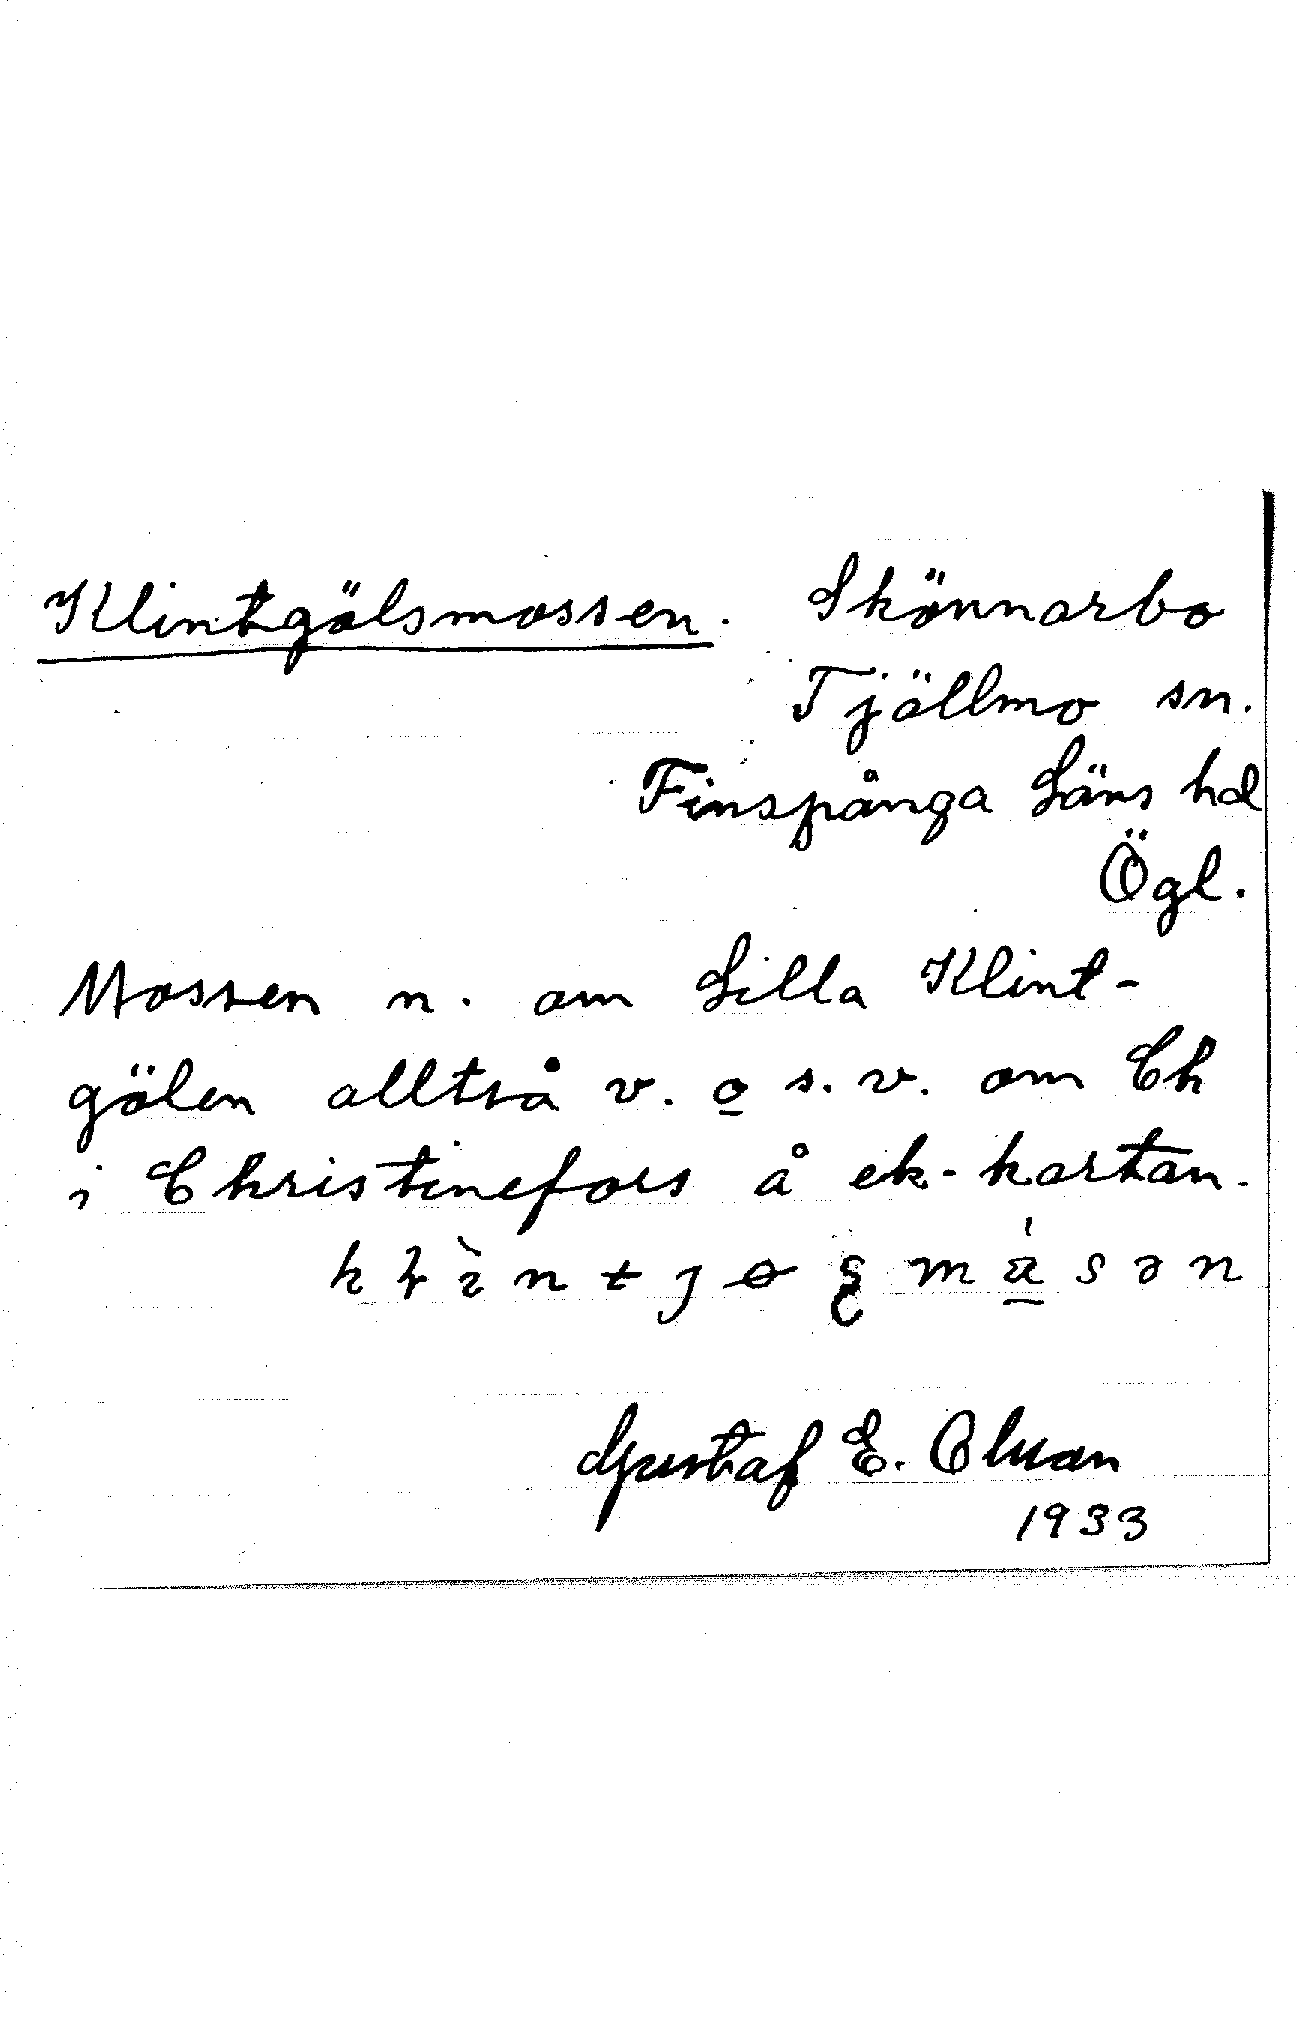 Klintgölsmossen. Skönnarbo
Tjällmo sn.
Finspånga Läns hd
Ögl.
Mossen n. om Lilla Klint-
gölen alltså v. o s.v. om Ch
i Christinefors å ek-kartan.
Gustaf E. Olman
1933